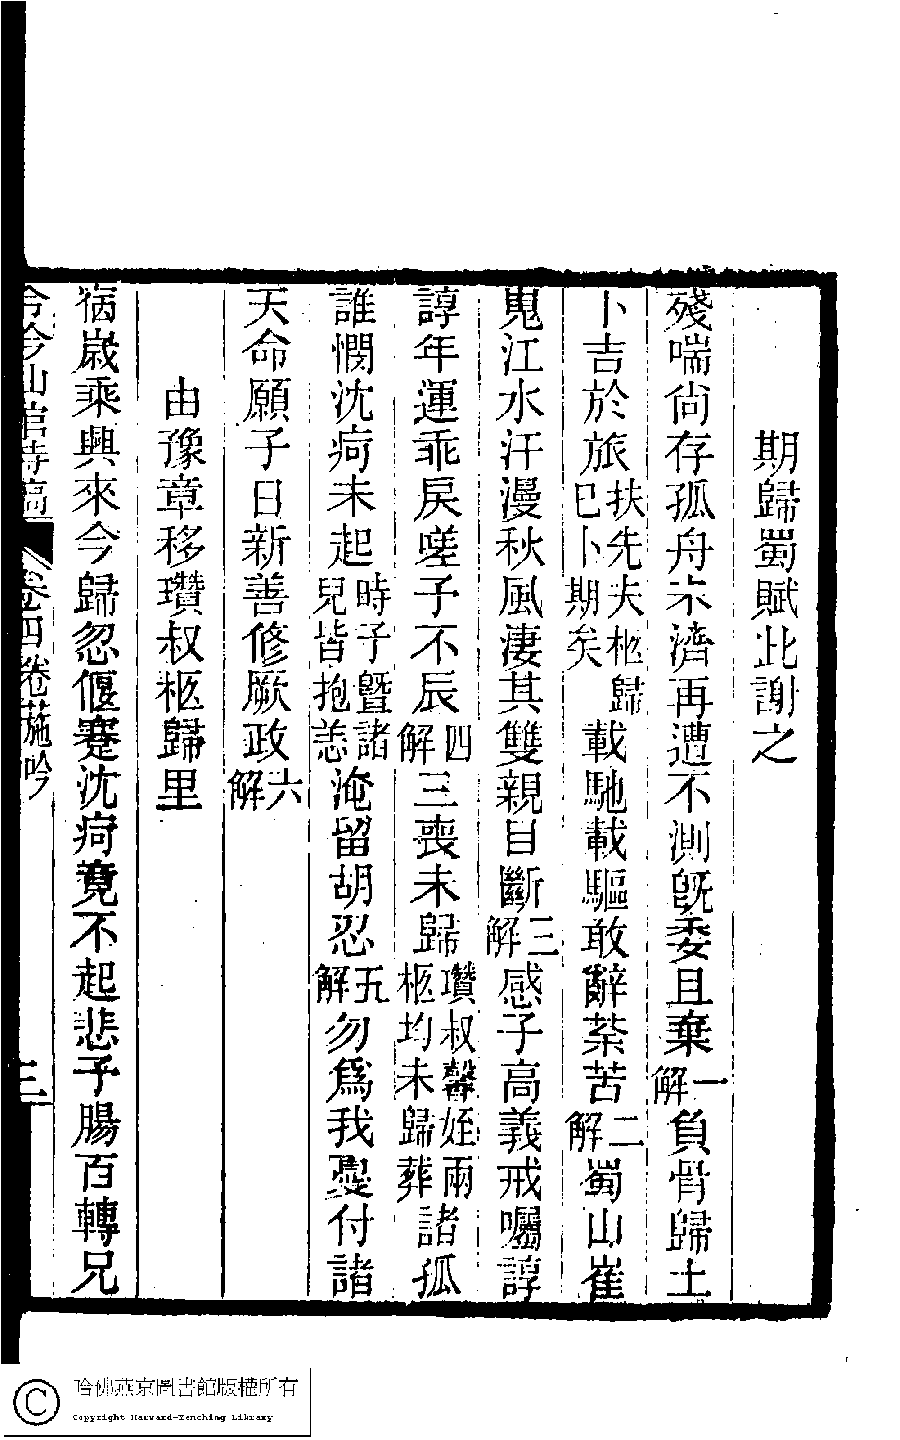 期歸蜀賦此謝之
殘喘尙存孤舟未濟再遭不測旣委且棄一解負骨歸土
卜吉於旅扶先夫柩歸已卜期矣載馳載驅敢辭荼苦二解蜀山崔
嵬江水汗漫秋風淒其雙親目斷三解感子高義戒囑諄
諄年運乖戾嗟予不辰四解三喪未歸瓚叔馨姪兩柩均未歸葬諸孤
誰憫沈疴未起時子曁諸兒皆抱恙淹留胡忍五解勿爲我憂付諸
天命願子日新善修厥政六解
由豫章移瓚叔柩歸里
猶歲乘興來今歸忽偃蹇沈疴竟不起悲予腸百轉兄
吟吟山館詩稿 卷四卷葹吟 三
哈佛燕京圖書館版權所有
Copyright Harvard-Yenching Library